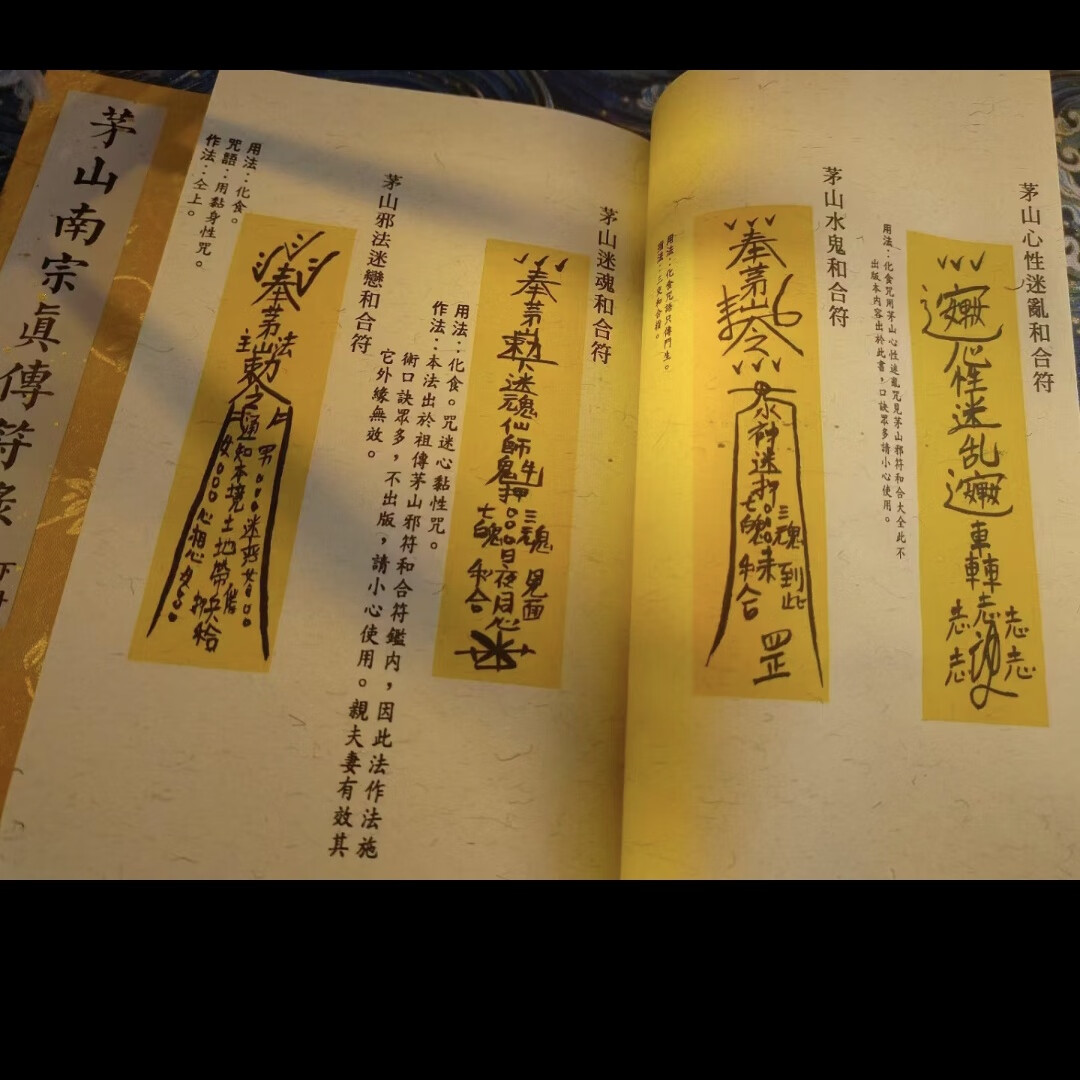 茅山心性迷亂和合符
用法：化食咒用茅山心性迷亂咒見茅山邪符和合大全此不
出版本內容出於此書，口訣眾多請小心使用。
心性迷乱
車轉
志志
志志志
茅山水鬼和合符
用法：化食咒語只傳門生。
奉茅山
神迷
三魂到此
七魄
和合
罡
茅山迷魂和合符
用法：化食。咒迷心黏性咒。
作法：本法出於祖傳茅山邪符和合符鑑內，因此法作法施
術口訣眾多，不出版，請小心使用。親夫妻有效其
它外緣無效。
奉茅山
迷魂仙師
三魂
七魄
日夜同心
見面
和合
茅山邪法迷戀和合符
用法：化食。
咒語：用黏身性咒。
作法：仝上。
奉茅山法主勅令
男○○○迷
女○○○心相
通知本境土地帶
茅山南宗真傳符